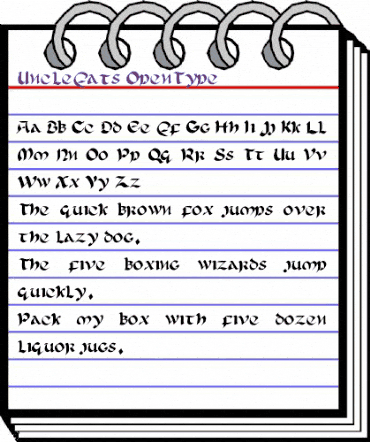 UncleFats OpenType
Aa Bb Cc Dd Ee Ff Gg Hh Ii Jj Kk Ll
Mm Nn Oo Pp Qq Rr Ss Tt Uu Vv
Ww Xx Yy Zz
The quick brown fox jumps over
the lazy dog.
The five boxing wizards jump
quickly.
Pack my box with five dozen
liquor jugs.